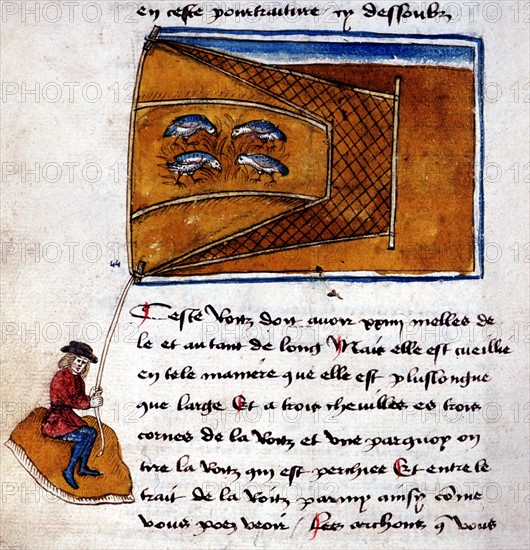 en ceste pourtraiture cy dessoubz
44
Ceste Roitz doit avoir xxiiii melles de
le et autant de long Mais elle est cueillie
en tele maniere que elle est pluslongue
que large Et a trois chevilles es trois
cornes de la Roitz et une parquoy on
tire la Roitz qui est perchiee Et entre le
trait de la Roitz parmy ainsy cõme
vous poez veoir / Les archons q̃ vous
PHOTO 12